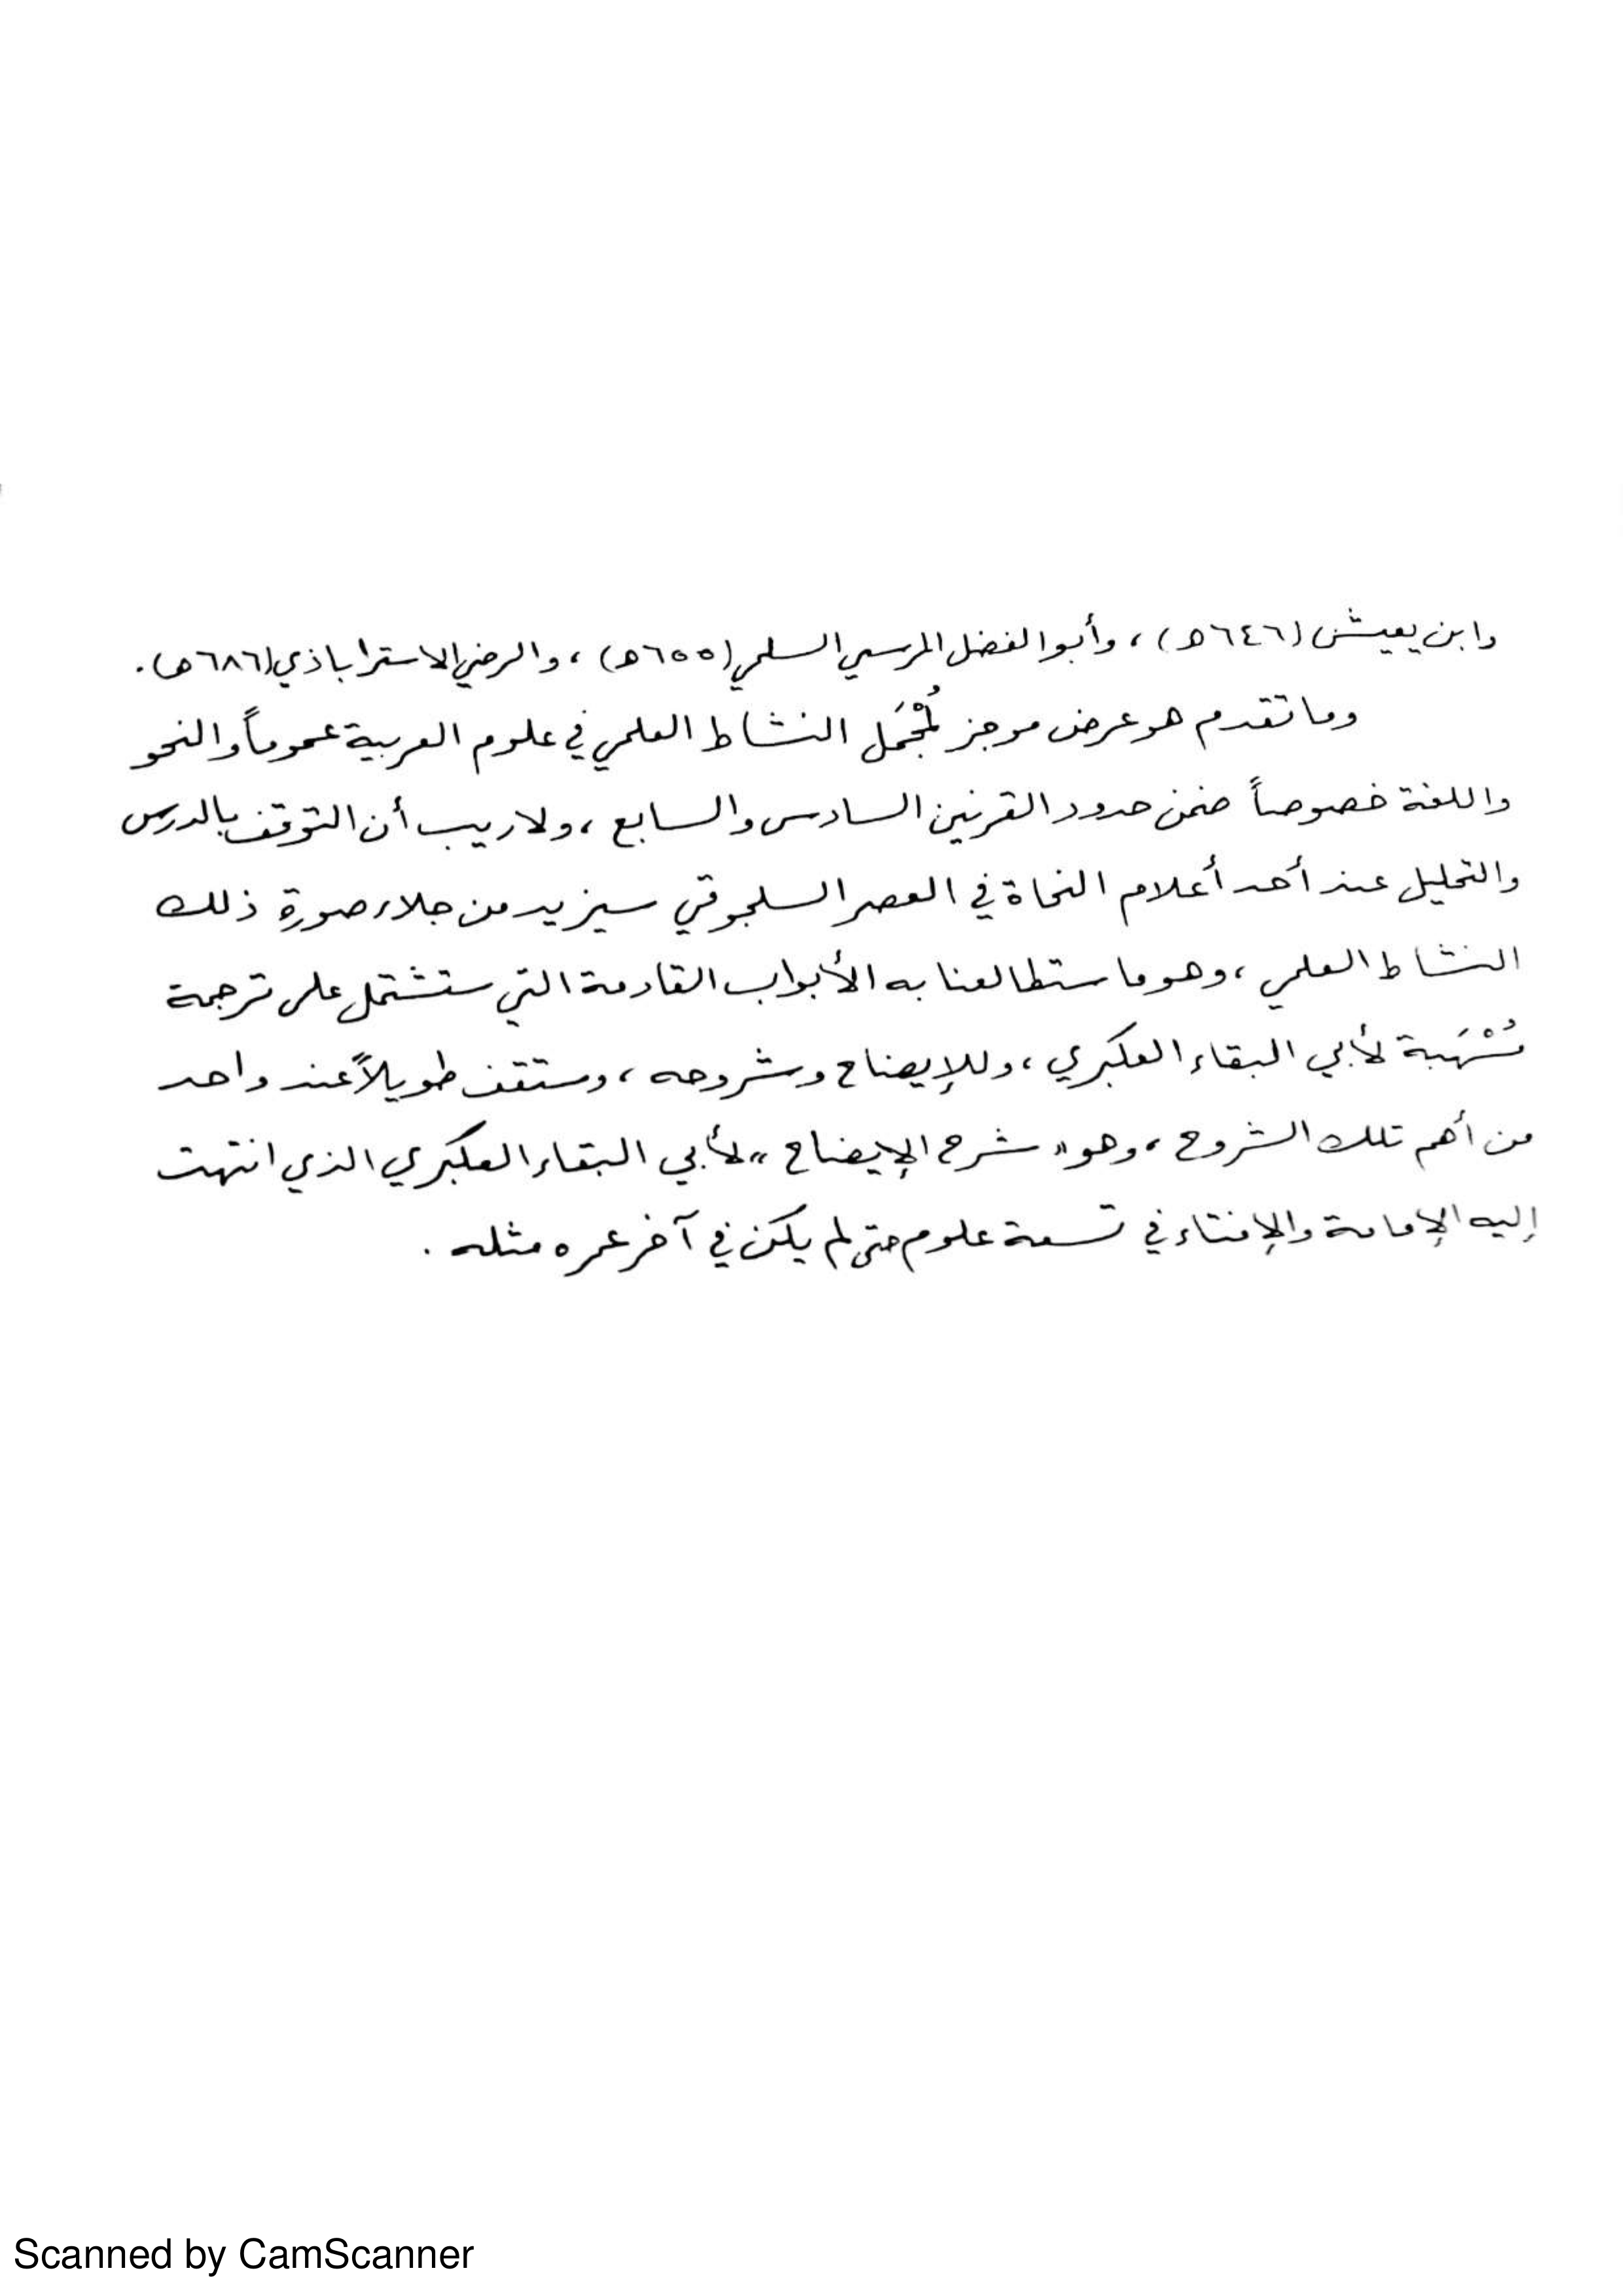 وابن يعيش (٦٤٦هـ) ، وأبو الفضل المرسي السلمي (٦٥٥هـ) ، والرضي الاستراباذي (٦٨٦هـ) .
وما تقدم هو عرض موجز لمُجْمَل النشاط العلمي في علوم العربية عموماً والنحو
واللغة خصوصاً ضمن حدود القرنين السادس والسابع ، ولا ريب أن التوقف بالدرس
والتحليل عند أحد أعلام النحاة في العصر السلجوقي سيزيد من جلاء صورة ذلك
النشاط العلمي ، وهو ما ستطالعنا به الأبواب القادمة التي ستشتمل على ترجمة
مُسْهَبة لأبي البقاء العكبري ، وللإيضاح وشروحه ، وستقف طويلاً عند واحد
من أهم تلك الشروح ، وهو « شرح الإيضاح » لأبي البقاء العكبري الذي انتهت
إليه الإمامة والإفتاء في تسعة علوم حتى لم يكن في آخر عمره مثله .
Scanned by CamScanner